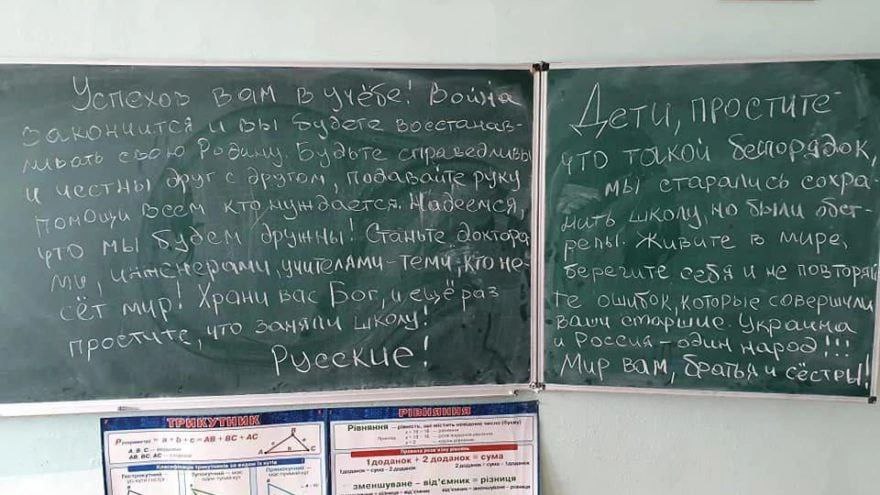 Успехов вам в учёбе! Война
закончится и вы будете восстанав-
ливать свою Родину. Будьте справедливы
и честны друг с другом, подавайте руку
помощи всем кто нуждается. Надеемся,
что мы будем дружны! Станьте доктора
ми, инженерами, учителами-теми, кто не-
сёт мир! Храни вас Бог, и ещё раз
простите, что заняли школу!
Русские!
Дети, простите-
что такой беспорядок,
мы старались сохра-
нить школу, но были обст-
релы. Живите в мире,
берегите себя и не повторяй
те ошибок, которые совершили
ваши старшие. Украина
и Россия - один народ!!!
Мир вам, братья и сёстры!
ТРИКУТНИК
= a + b + c = AB + BC + AC
A, B, C
AB, BC, AC
Класифікація трикутників за видом їх кутів
РІВНЯННЯ
Рівняння - рівність, що містить невідоме число (букву)
1 доданок + 2 доданок = сума
1 доданок = сума - 2 доданок
2 доданок = сума - 1 доданок
зменшуване - від'ємник = різниця